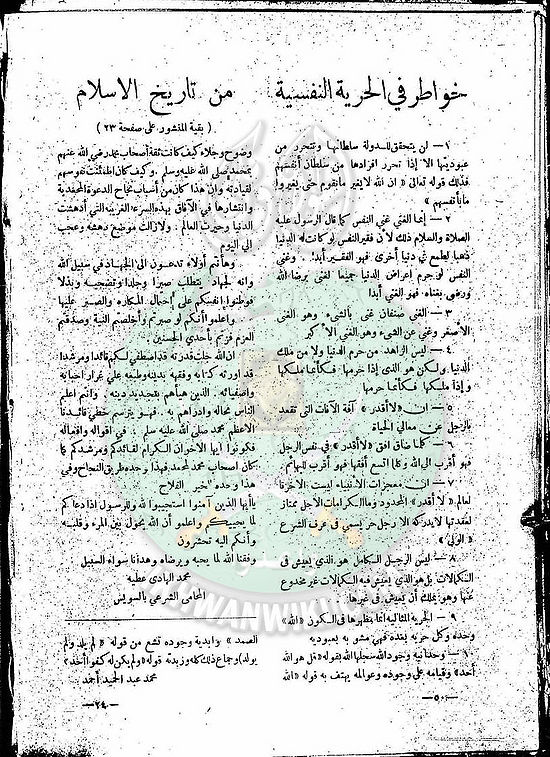 خواطر في الحرية النفسية
١ — لن يتحقق للدولة سلطانها وتتحرر من
عبوديتها الا إذا تحرر افرادها من سلطان أنفسهم
فذلك قوله تعالى « ان الله لا يغير ما بقوم حتى يغيروا
ما بأنفسهم »
٢ — إنما الغنى غنى النفس كما قال الرسول عليه
الصلاة والسلام ذلك لأن فقير النفس لو كانت له الدنيا
ذهبا لطمع في دنيا أخرى فهو الفقير أبدا . وغني
النفس لو حرم اعراض الدنيا جميعا لغنى برضا الله
ورضى بقناه فهو الغنى أبدا
٣ — الغنى صنفان غنى بالشىء وهو الغنى
الأصغر وغنى عن الشىء وهو الغنى الأكبر
٤ — ليس الزاهد من حرم الدنيا ولا من ملك
الدنيا ولكن هو الذى إذا حرمها فكأنما ملكها
وإذا ملكها فكأنما حرمها
٥ — ان « لا أقدر » آفة الآفات التى تقعد
بالرجل عن معالى الحياة
٦ — كلما ضاق افق « لا أقدر » فى نفس الرجل
فهو أقرب الى الله وكلما اتسع أفقها فهو أقرب للبهائم
٧ — ان معجزات الأنبياء ليست الا خرقا
لعالم « لا أقدر » المحدود وما الكرامات الا جل ممتاز
لعقدتها لا يدركه الا رجل حر يسمى فى عرف الشرع
« الولى »
٨ — ليس الرجل الكامل هو الذى يعيش فى
الكمالات بل هو الذى يعيش فيه الكمالات غير مخدوع
وهو يملك أن يعيش فى غيرها
٩ — الحرية المثالية انما مظهرها فى السكون « الله »
وحده وكل حرية بعده فهى مشوبه بعبوديه
وحدانية وجود الله سجلها الله بقوله « قل هو الله
أحد » وقيامه على وجوده وعوالمه يهتف به قوله « الله
— ٥٠ —
من تاريخ الاسلام
( بقية المنشور على صفحة ٢٣ )
وضوح وجلاء كيف كانت ثقة أصحاب محمد رضى الله عنهم
بمحمد صلى الله عليه وسلم . وكيف كان اطمئنت نفوسهم
لقيادته وان هذا كان من أسباب نجاح الدعوة المحمدية
وانتشارها فى الآفاق بهذه السرعة الغريبة التى أدهشت
الدنيا وحيرت العالم . ولازالت موضع دهشه وعجب
الى اليوم
وهأنتم أولاء تدعون الى الجهاد فى سبيل الله
وانه لجهاد يتطلب صبرا وجلدا وتضحية وبذلا
فوطنوا انفسكم على احتمال المكاره والصبر عليها
واعلموا أنكم لو صبرتم وأخلصتم النية وصدقتم
العزم فزتم بأحدى الحسنين .
ان الله جلت قدرته قد اصطفى لكم قائدا ومرشدا
قد اورثه كتابه وفقهه بدينه وطبعه على غرار احبائه
وأصفيائه . الذين هيأهم لتجديد دينه . وانتم اعلم
الناس بحاله وادراهم به . فهو يترسم خطى قائدنا
الأعظم محمد صلى الله عليه وسلم . فى اقواله وافعاله
فكونوا ايها الاخوان الكرام لقائدكم ومرشدكم كما
كان أصحاب محمد لمحمد فهذا وحده طريق النجاح وفى
هذا وحده الخير الفلاح
يا أيها الذين آمنوا استجيبوا لله وللرسول إذا دعاكم
لما يحييكم واعلموا أن الله يحول بين المرء وقلبه
وأنكم اليه تحشرون
وفقنا الله لما يحبه ويرضاه وهدانا سواء السبيل
محمد الهادى عطيه
المحامى الشرعى بالسويس
الصمد » وابدية وجوده تشع من قوله « لم يلد ولم
يولد » وجماع ذلك كله وزبدته قوله « ولم يكن له كفوا أحد »
محمد عبد الحميد أحمد
— ٢٤ —